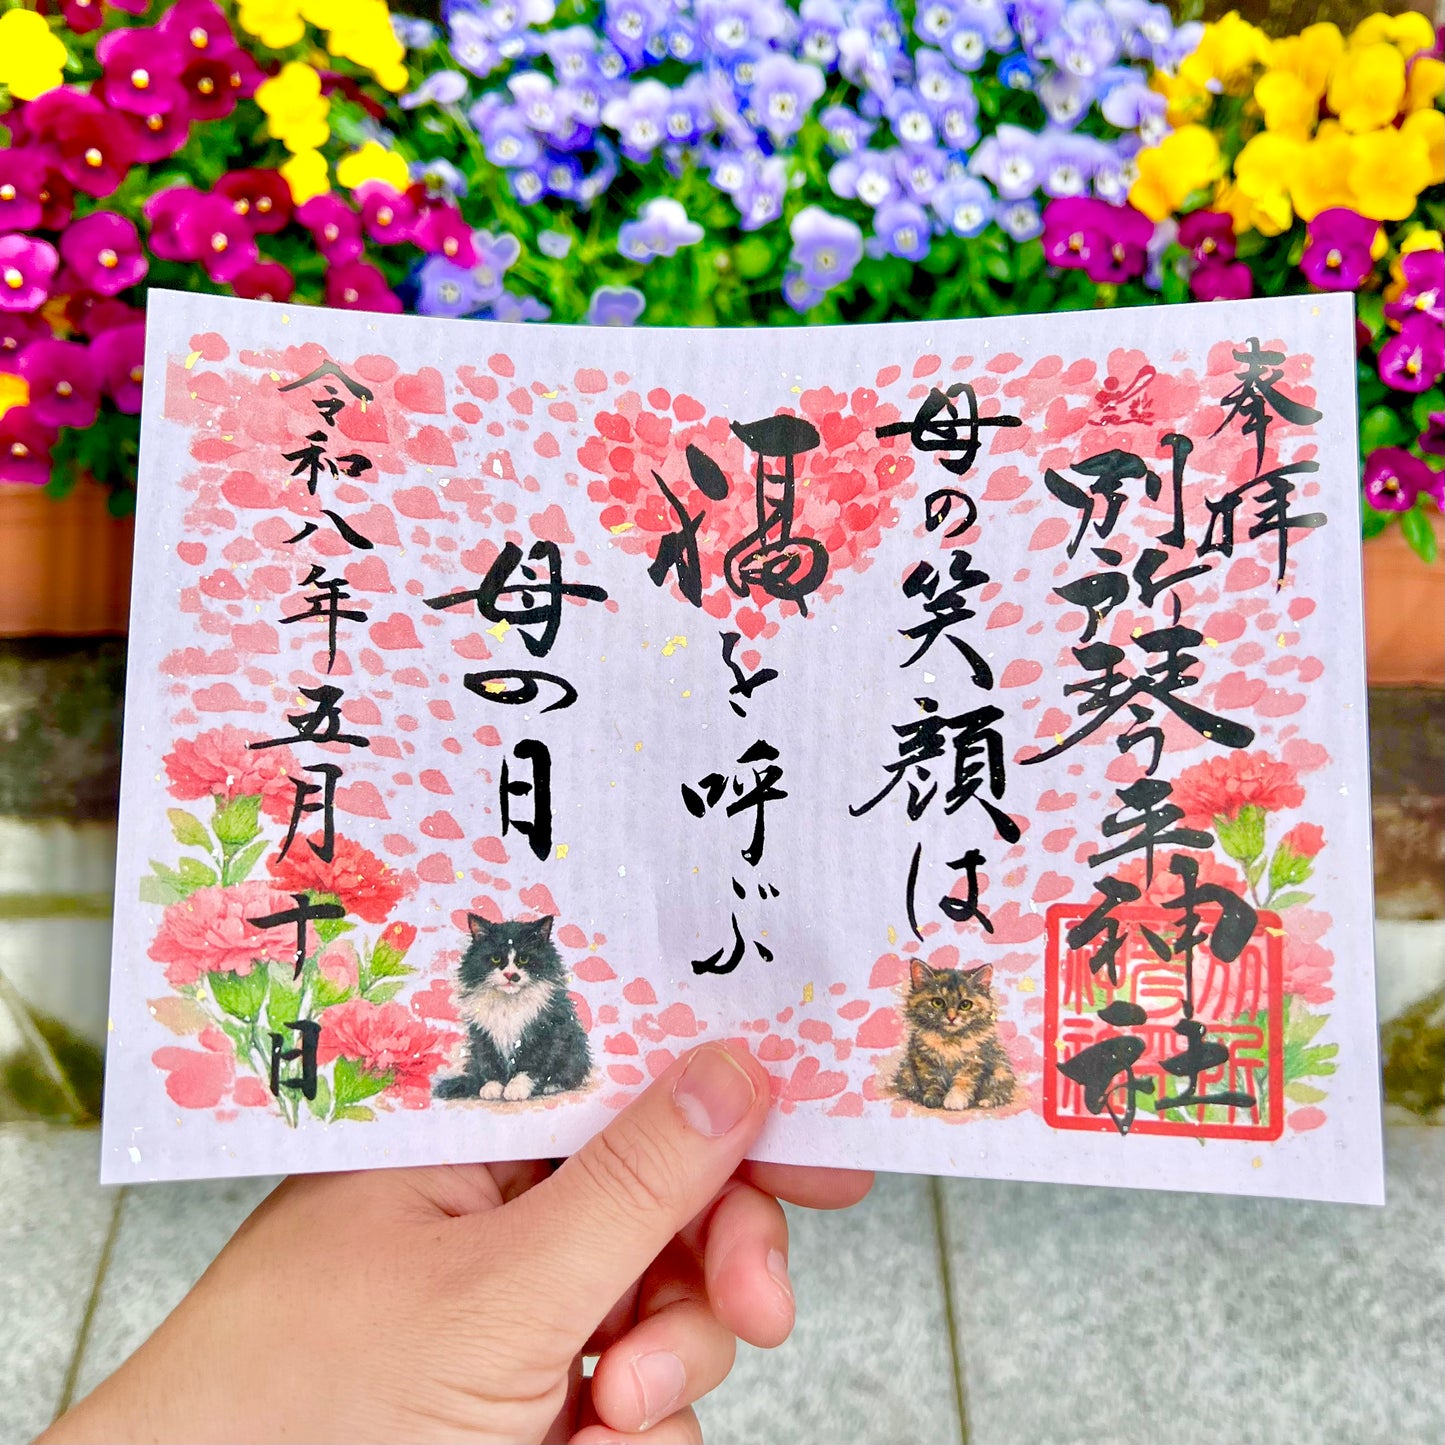 奉拝
別所琴平神社
母の笑顔は
福を呼ぶ
母の日
令和八年五月十日